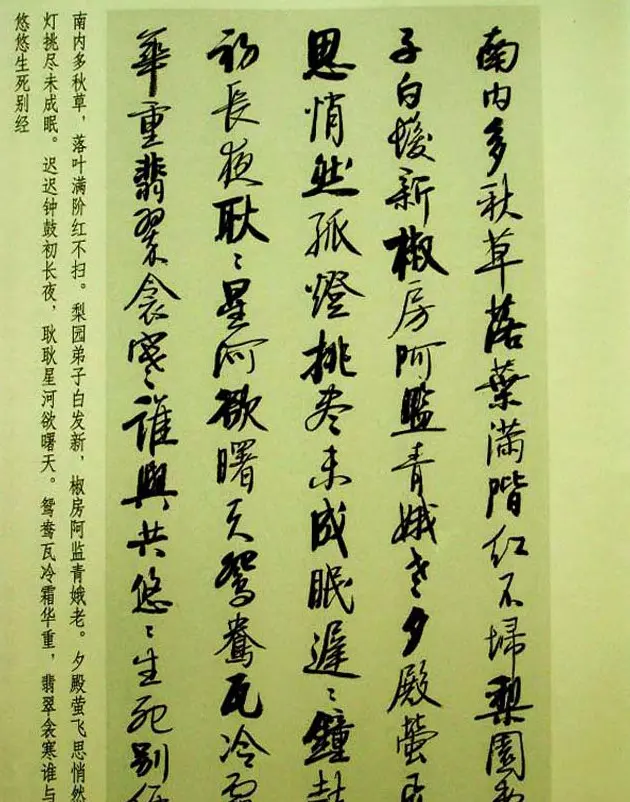 南内多秋草落葉滿階红不掃梨園
子白髮新椒房阿監青娥老夕殿螢
思悄然孤燈挑尽未成眠遲〻鐘鼓
初長夜耿〻星河欲曙天鴛鴦瓦冷霜
華重翡翠衾寒誰與共悠〻生死别
南内多秋草，落叶满阶红不扫。梨园弟子白发新，椒房阿监青娥老。夕殿萤飞思悄然
灯挑尽未成眠。迟迟钟鼓初长夜，耿耿星河欲曙天。鸳鸯瓦冷霜华重，翡翠衾寒谁与
悠悠生死别经